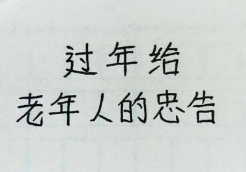 过年给
老年人的忠告